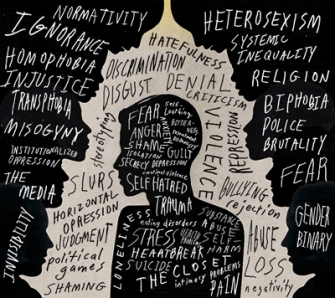 NORMATIVITY
IGNORANCE
HOMOPHOBIA
INJUSTICE
TRANSPHOBIA
MISOGYNY
INSTITUTIONALIZED
OPPRESSION
THE
MEDIA
HETEROSEXISM
SYSTEMIC
INEQUALITY
RELIGION
BIPHOBIA
POLICE
BRUTALITY
FEAR
GENDER
BINARY
HATEFULNESS
DISCRIMINATION
DISGUST
DENIAL
CRITICISM
stereotyping
VIOLENCE
REPRESSION
SLURS
BULLYING
rejection
HORIZONTAL
OPRESSION
JUDGMENT
political
games
SHAMING
ABUSE
LOSS
negativity
FEAR
Self-
Loathing
ANGER
SHAME
GUILT
ISOLATION
SECRECY
DEPRESSION
emotional violence
SELF
HATRED
TRAUMA
LONELINESS
eating disorders
STRESS
HEARTBREAK
SUICIDE
THE CLOSET
intimacy
PROBLEMS
PAIN
SUBSTANCE
ABUSE
SELF
HARM